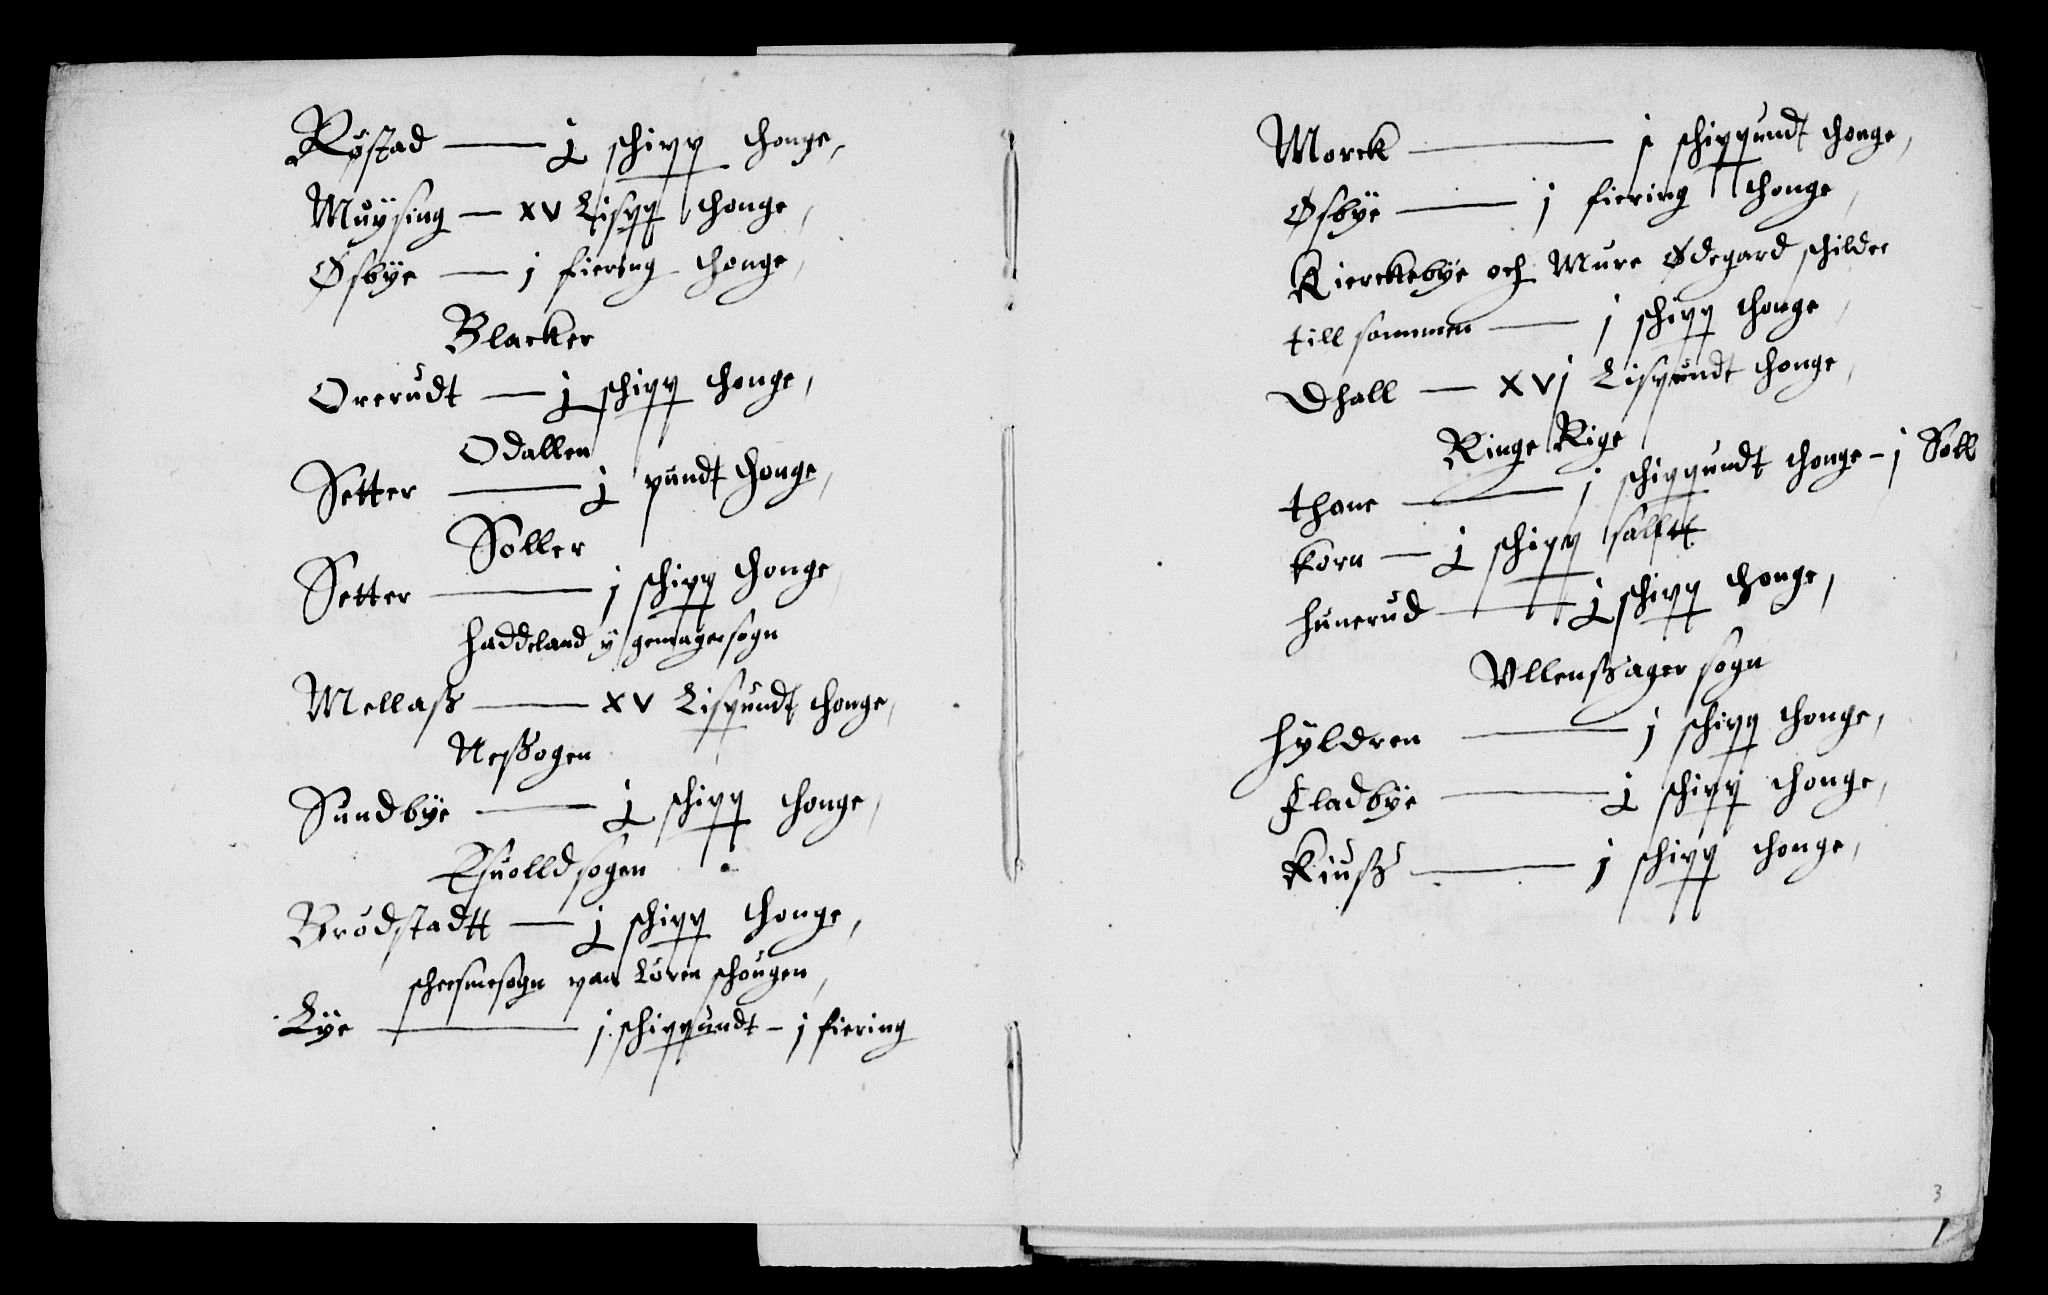 Røstad — j schipp honge,
Muÿsing — XV Lispp honge,
Øsbÿe — j fiering honge,
Blacker
Ørerudt — j schipp honge,
Odallen
Setter — j pundt honge,
Soller
Setter — j schipp honge,
Haddeland ÿ gemagersogn
Mellass — XV Lispundt honge,
Nessogen
Sundbÿe — j schipp honge,
Eiuolldsogen
Brødstadtt — j schipp honge,
scheesmesogn paa Løren schougen,
Lÿe — j schippundt – j fiering
Morck — j schippundt honge,
Øsbÿe — j fiering honge,
Kierckebÿe och Mure Ødegard schilder
till sammen — j schipp honge,
Dhall — XVj Lispundt honge,
Ringe Rige
thane — j schippundt honge – j Soll
korn — j schipp salltt
hunerud — j schipp honge,
Vllenssager sogn
hÿldren — j schipp honge,
Fladbÿe — j schipp honge,
Kiuss — j schipp honge,
3